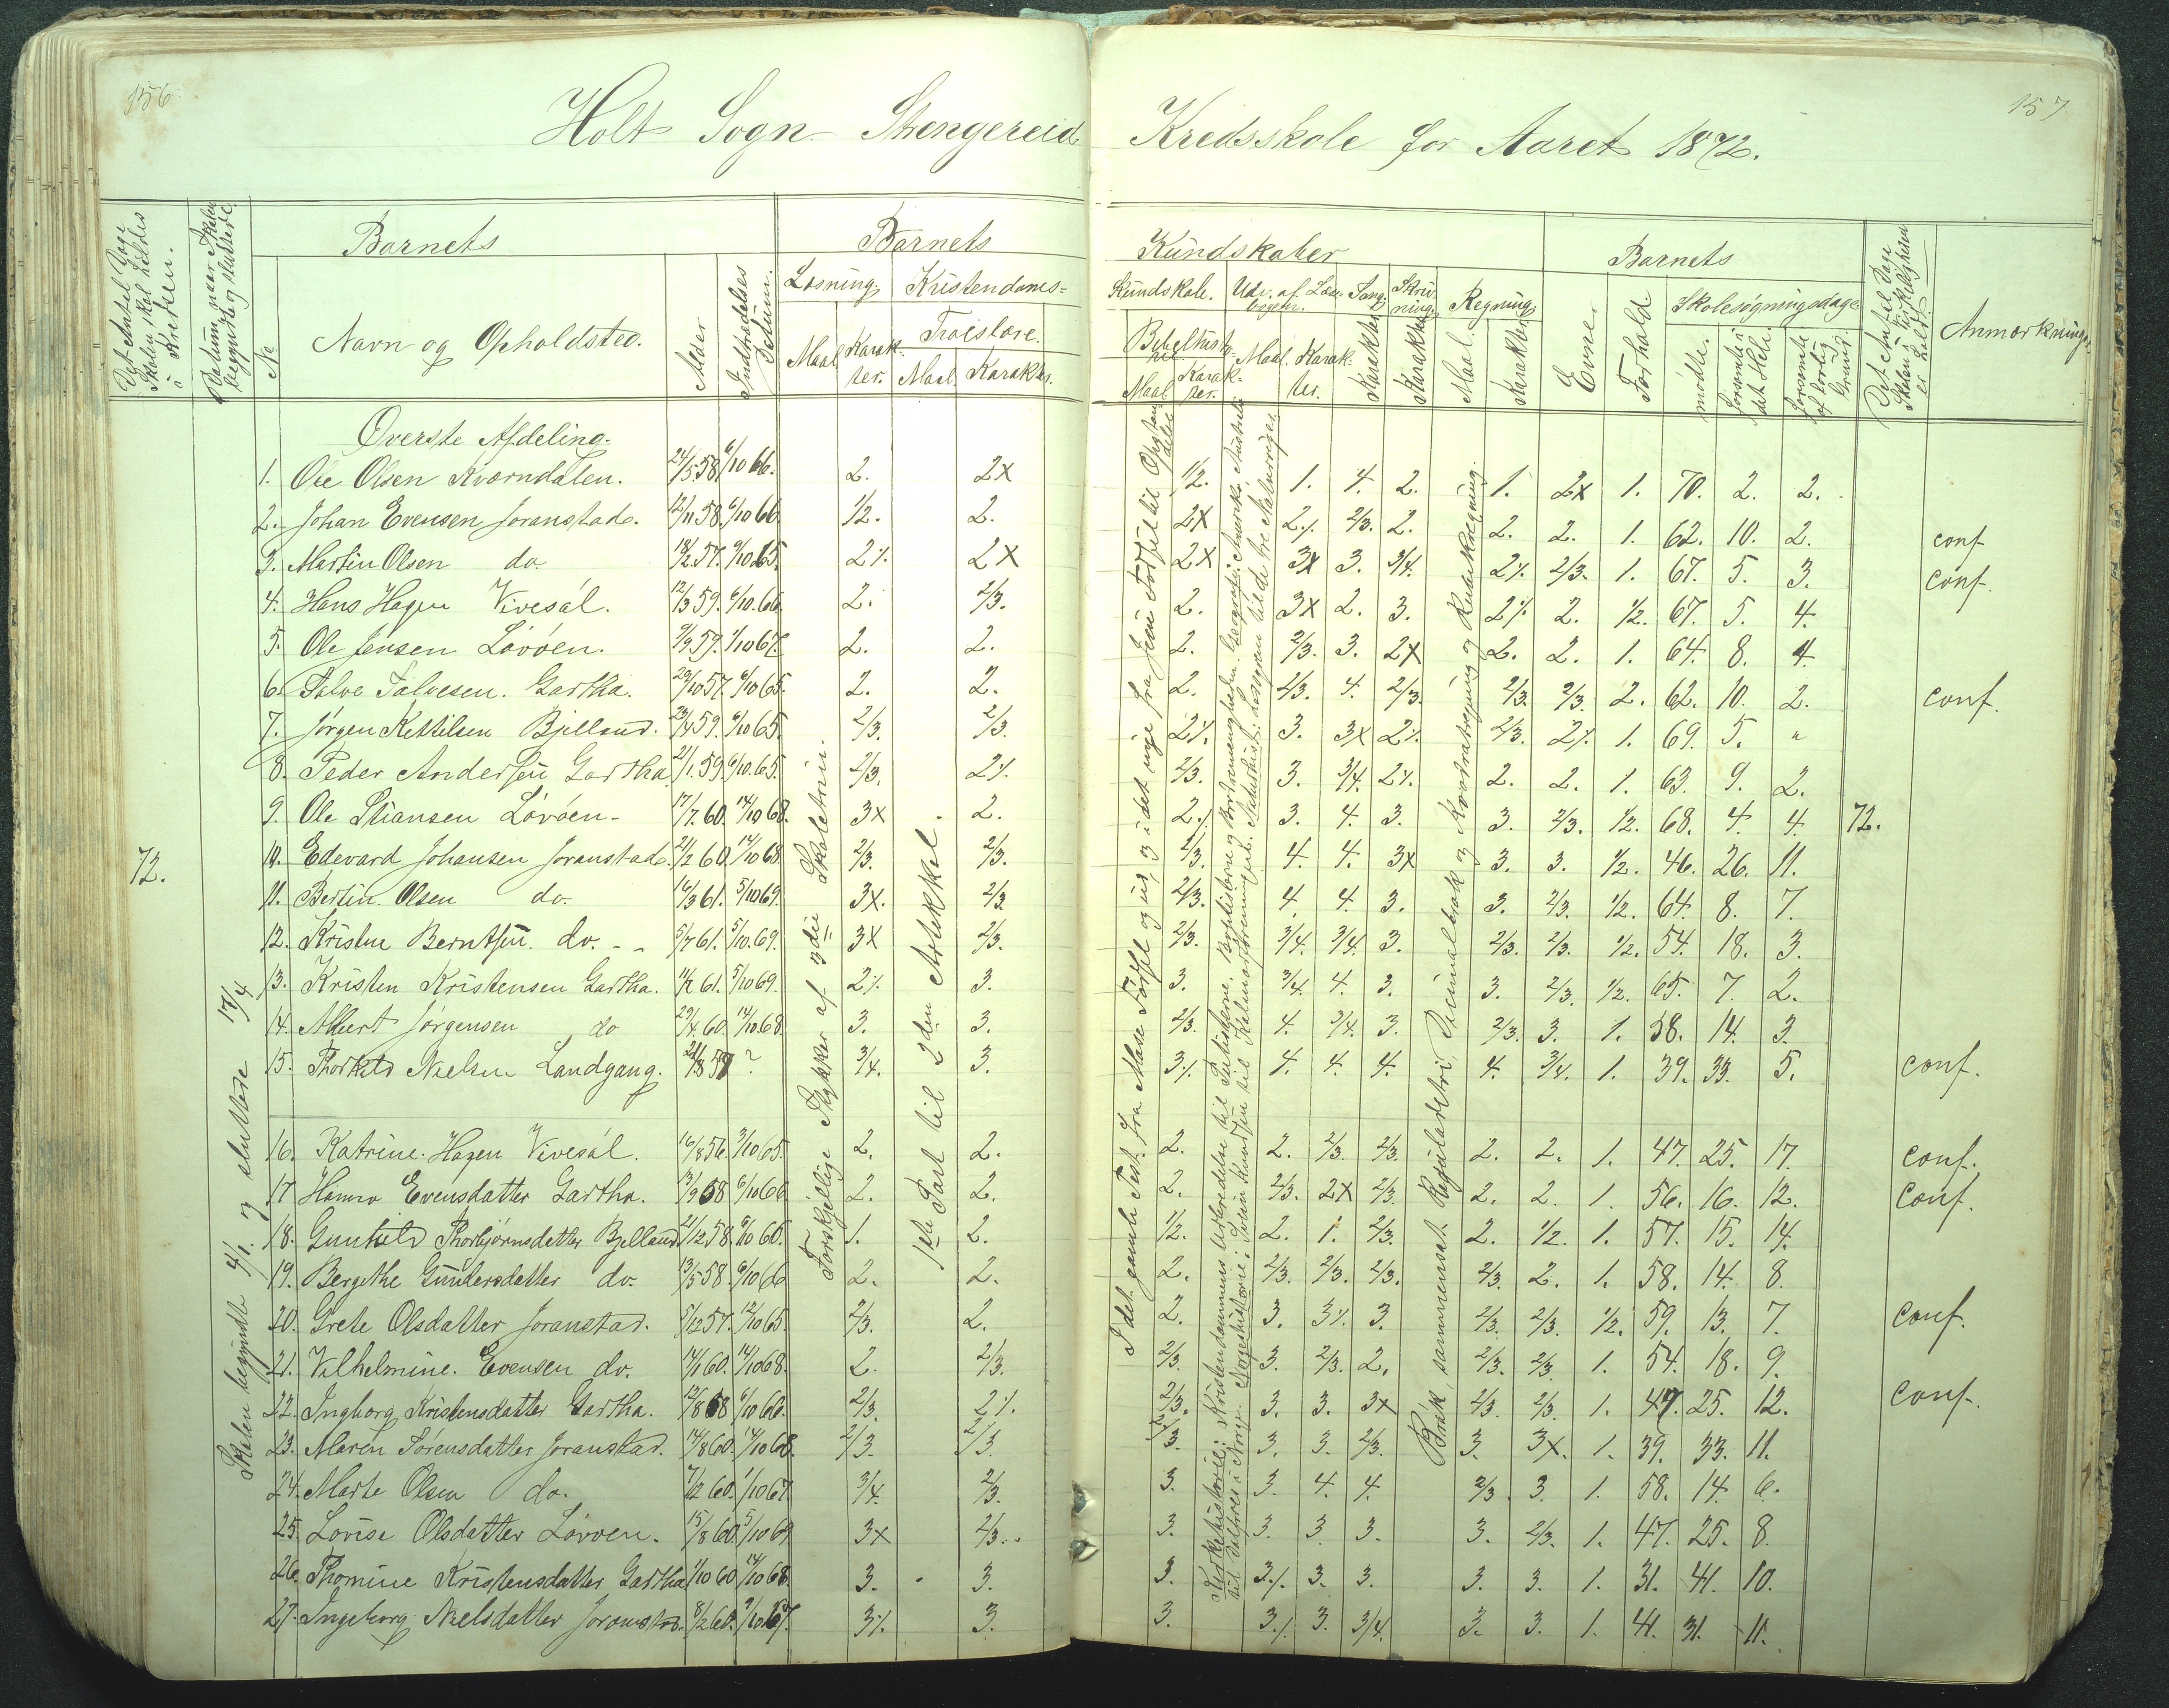 156
157
Holt Sogn Strengereid Kredsskole for Aaret 1872.
Det Antal Dage Skolen skal holdes i Kredsen.
Datum, naar Skolen begyndte og sluttede.
No
Barnets
Navn og Opholdsted.
Alder
Indtrædelses Datum.
Barnets Kundskaber
Læsning. Kristendoms= Kundskab. Udv. af Læse bogen. Sang. Skriv ning. Regning
Maal Karak- ter. Troislære. Maal. Karakter.
Bibelhisto- rie Maal Karak- ter. Maal. Karak- ter. Karakter Karakter Maal. Karakter
Barnets
Evner. Forhold Skolesøgningsdage
mødte. forsømte i det Hele. forsømte af lovlig Grund.
Det Antal Dage Skolen i Virkeligheden er holdt
Anmærkninger
72.
Skolen begyndte 4/1. og sluttede 17/4
Forskjellige Stykker af 3die Skoletrin.
1ste Part til 2den Artikkel.
Øverste Afdeling.
1. Ole Olsen Kværndalen. 24/5 58. 6/10 66. 2. 2x 1/2. 1. 4. 2. 1. 2x 1. 70. 2. 2.
2. Johan Evensen Joranstad. 12/11 58. 6/10 66. 1/2. 2. 2x 2·/. 2/3. 2. 2. 2. 1. 62. 10. 2. conf
3. Martin Olsen do. 18/2 57. 9/10 65. 2·/. 2x 2x 3x 3. 3/4. 2·/. 2/3. 1. 67. 5. 3. conf.
4. Hans Hagen Vivesøl. 12/3 59. 6/10 66 2. 2/3. 2. 3x 2. 3. 2·/. 2. 1/2. 67. 5. 4.
5. Ole Jensen Løvøen. 9/9 59. 1/10 67. 2. 2. 2. 2/3. 3. 2x 2. 2. 1. 64. 8. 4
6. Salve Salvesen. Gartha. 29/10 57. 9/10 65. 2. 2. 2. 2/3. 4. 2/3. 2/3. 2/3. 2. 62. 10. 2. conf.
7. Jørgen Kettilsen Bjelland. 23/4 59. 6/10 65. 2/3. 2/3. 2·/. 3. 3x 2·/. 2/3. 2·/. 1. 69. 5. "
8. Peder Andersen Gartha 21/1. 59. 6/10. 65. 2/3. 2·/. 2/3. 3. 3/4. 2·/. 2. 2. 1. 63. 9. 2.
9. Ole Stiansen Løvøen- 17/7. 60. 14/10 68. 3x 2. 2·/. 3. 4. 3. 3. 2/3. 1/2. 68. 4. 4. 72.
10. Edevard Johansen Joranstad. 21/2 60. 14/10 68. 2/3. 2/3. 2/3. 4. 4. 3x 3. 3. 1/2. 46. 26. 11.
11. Bertin Olsen do. 16/3 61. 5/10 69. 3x. 2/3. 2/3. 4. 4. 3. 3. 2/3. 1/2. 64. 8. 7.
12. Kristen Berntsen. do. 5/7 61. 5/10. 69. 3x 2/3. 2/3. 3/4. 3/4. 3. 2/3. 2/3. 1/2. 54. 18. 3.
13. Kristen Kristensen Gartha. 61. 5/10 69. 2·/. 3. 3. 3/4. 4. 3. 3. 2/3. 1/2. 65. 7. 2.
14. Albert Jørgensen do 29/4. 60. 14/10. 68. 3. 3. 2/3. 4. 3/4. 3. 2/3. 3. 1. 58. 14. 3.
15. Thorkild Nielsen Landgang. 57 ? 3/4. 3. 3·/. 4. 4. 4. 4. 3/4. 1. 39. 33. 5. conf.
16. Katrine Hagen Vivesøl. 16/8 56. 3/10 65. 2. 2. 2. 2. 2/3. 2/3. 2. 2. 1. 47. 25. 17. conf.
17. Hanna Evensdatter Gartha. 13/9 58 6/10 66 2. 2. 2. 2/3. 2x 2/3. 2. 2. 1. 56. 16. 12. conf.
18. Gunhild Thorbjørnsdatter Bjelland 21/12 58. 6/10 66. 1. 2. 1/2. 2. 1. 2/3. 2. 1/2. 1. 57. 15. 14.
19. Bergithe Gundersdatter do. 13/5 58. 6/10 66 2. 2. 2. 2/3. 2/3. 2/3. 2/3. 2. 1. 58. 14. 8.
20. Grete Olsdatter Joranstad. 5/12 57. 12/10 65. 2/3. 2. 2. 3. 3·/. 3. 2/3. 2/3. 1/2. 59. 13. 7. conf.
21. Vilhelmine. Evensen do. 14/1 60. 14/10 68. 2. 2/3. 2/3. 3. 2/3. 2. 2/3. 2/3. 1. 54. 18. 9.
22. Ingborg Kristensdatter Gartha. 12/8 58 6/10 66. 2/3. 2·/. 2/3. 3. 3. 3x 2/3. 2/3. 1. 47. 25. 12. conf.
23. Maren Sørensdatter Joranstad. 14/8 60. 14/10 68. 2/3. 2/3. 2/3. 3. 3. 2/3. 3. 3x. 1. 39. 33. 11.
24. Marte Olsen do. 7/12 60. 1/10 67 3/4. 2/3. 3. 3. 4. 4. 2/3. 3. 1. 58. 14. 6.
25. Lovise Olsdatter Løvøen. 15/8 60. 5/10 69 3x 2/3. 3. 3. 3. 3. 3. 2/3. 1. 47. 25. 8.
26. Thomine Kristensdatter Gartha 1/10 60. 14/10 68. 3. 3. 3. 3·/. 3. 3. 3. 3. 1. 31. 41. 10.
27. Ingeborg Nielsdatter Joranstad. 8/2 60. 67. 3·/. 3. 3. 3·/. 3. 3/4. 3. 3. 1. 41. 31. 11.
I det gamle Test. fra Mose Fødsel og ud, og i det nye fra Jesu Fødsel til
Brøk, sammensat Reguladetri, Decimalbrøk og Kvadratregning og Rumregning.